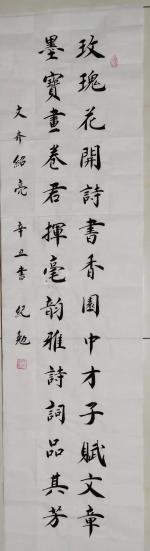 玫瑰花開詩書香園中才子賦文章
墨寶畫卷君揮毫韵雅詩詞品其芳
文齐紹亮 辛丑書 纪勉